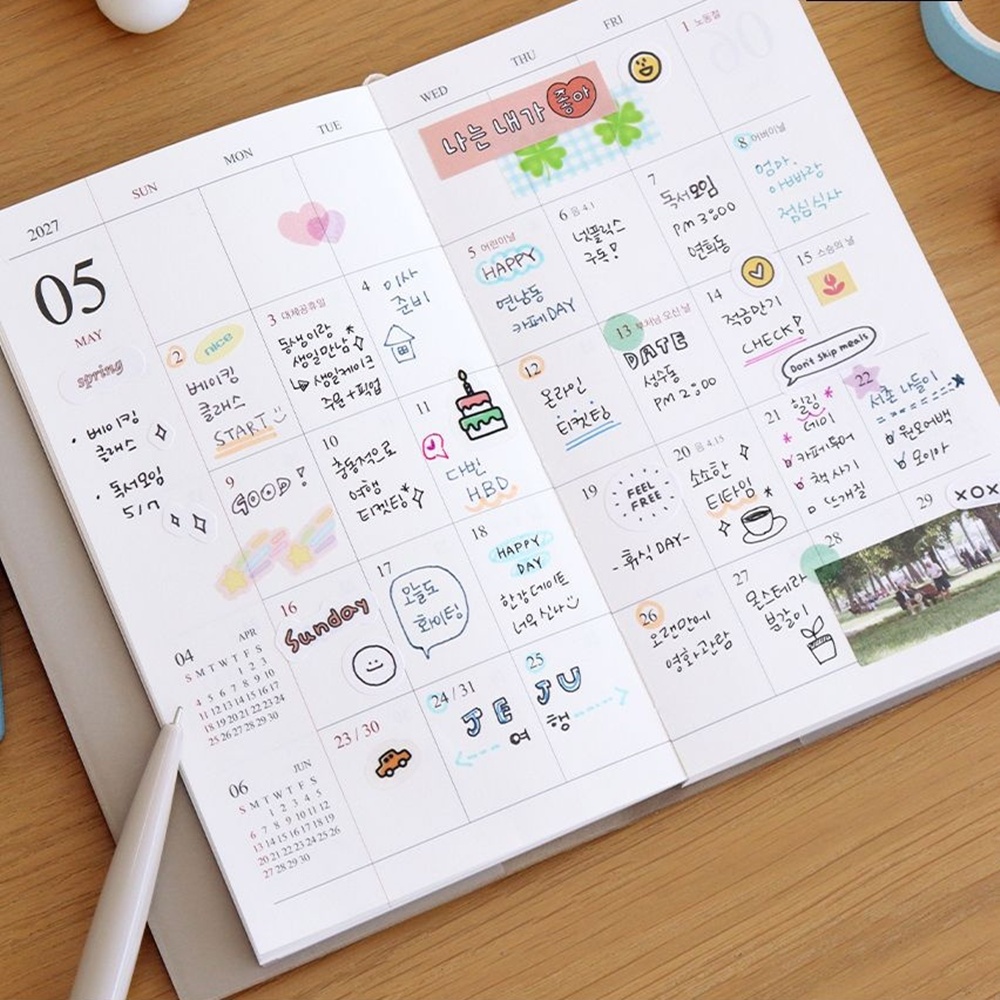 2027
SUN
MON
TUE
WED
THU
FRI
05
MAY
spring
• 베이킹
클래스
• 독서모임
나는 내가 좋아
1 노동절
2
nice
베이킹
클래스
START
3 대체공휴일
동생이랑
생일만남
생일케이크
주문+픽업
4
이사
준비
5 어린이날
HAPPY
연남동
카페DAY
6 음 4.1
넷플릭스
구독!
7
독서모임
PM 3:00
연희동
8 어버이날
엄마,
아빠랑
점심식사
9
GOOD!
10
충동적으로
여행
티켓팅
11
다빈
HBD
12
온라인
티켓팅
13 부처님 오신 날
DATE
성수동
PM 2:00
14
적금만기
CHECK!
15 스승의 날
Don't skip meals
16
Sunday
17
오늘도
화이팅
18
HAPPY
DAY
한강데이트
너무 신나
19
FEEL
FREE
- 휴식 DAY-
20 음 4.15
소소한
티타임
21
힐링
데이
카페투어
책 사기
뜨개질
22
서촌 나들이
원모어백
모이아
23 / 30
24 / 31
25
JEJU
여행
26
오랜만에
영화관람
27
몬스테라
분갈이
28
29
XOX
04
APR
S M T W T F S
1 2 3
4 5 6 7 8 9 10
11 12 13 14 15 16 17
18 19 20 21 22 23 24
25 26 27 28 29 30
06
JUN
S M T W T F S
1 2 3 4 5
6 7 8 9 10 11 12
13 14 15 16 17 18 19
20 21 22 23 24 25 26
27 28 29 30